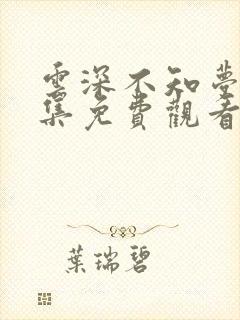 雲深不知夢
集免費觀看
葉瑞碧